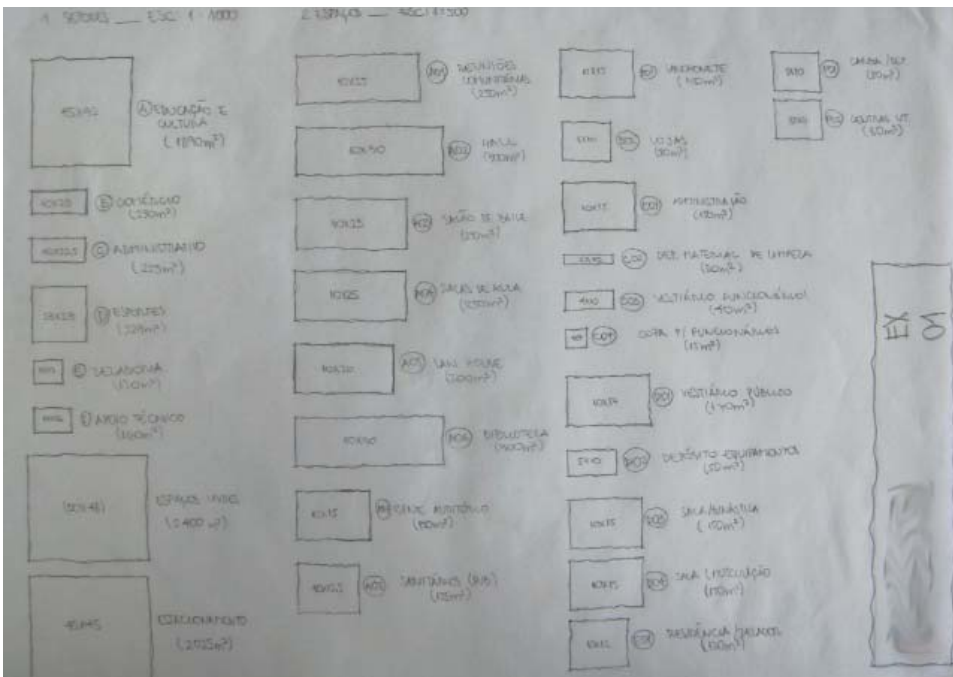 1. SETORES ___ ESC: 1:1000
45X42
A EDUCAÇÃO E
CULTURA
(1890m²)
10X23
B COMÉRCIO
(230m²)
C ADMINISTRATIVO
(225m²)
D ESPORTES
E ZELADORIA
F APOIO TÉCNICO
(160m²)
ESPAÇOS LIVRES
(2400 m²)
45X45
ESTACIONAMENTO
(2025m²)
2. ESPAÇOS ___ ESC: 1:500
10X25
A01 REUNIÕES
COMUNITÁRIAS
(250m²)
10X30
A02 HALL
(300m²)
10X25
A03 SALÃO DE BAILE
(250m²)
10X25
A04 SALAS DE AULA
(250m²)
10X20
A05 LAN HOUSE
(200m²)
A06 BIBLIOTECA
10X15
A07 CINE AUDITÓRIO
(150m²)
A08 SANITÁRIOS
(125m²)
10X15
B01 LANCHONETE
(150m²)
5X10
B02 LOJAS
10X15
C01 ADMINISTRAÇÃO
(150m²)
C02 DEP. MATERIAL DE LIMPEZA
(20m²)
4X10
C03 VESTIÁRIO FUNCIONÁRIOS
(40m²)
C04 COPA P/ FUNCIONÁRIOS
(15m²)
10X14
D01 VESTIÁRIO PÚBLICO
(140m²)
5X10
D02 DEPÓSITO EQUIPAMENTOS
(50m²)
10X15
D03 SALA GINÁSTICA
(150m²)
10X15
D04 SALA MUSCULAÇÃO
(150m²)
10X12
E01 RESIDÊNCIA
(120m²)
8X10
F01
(80m²)
8X10
F02
(80m²)
EX
01